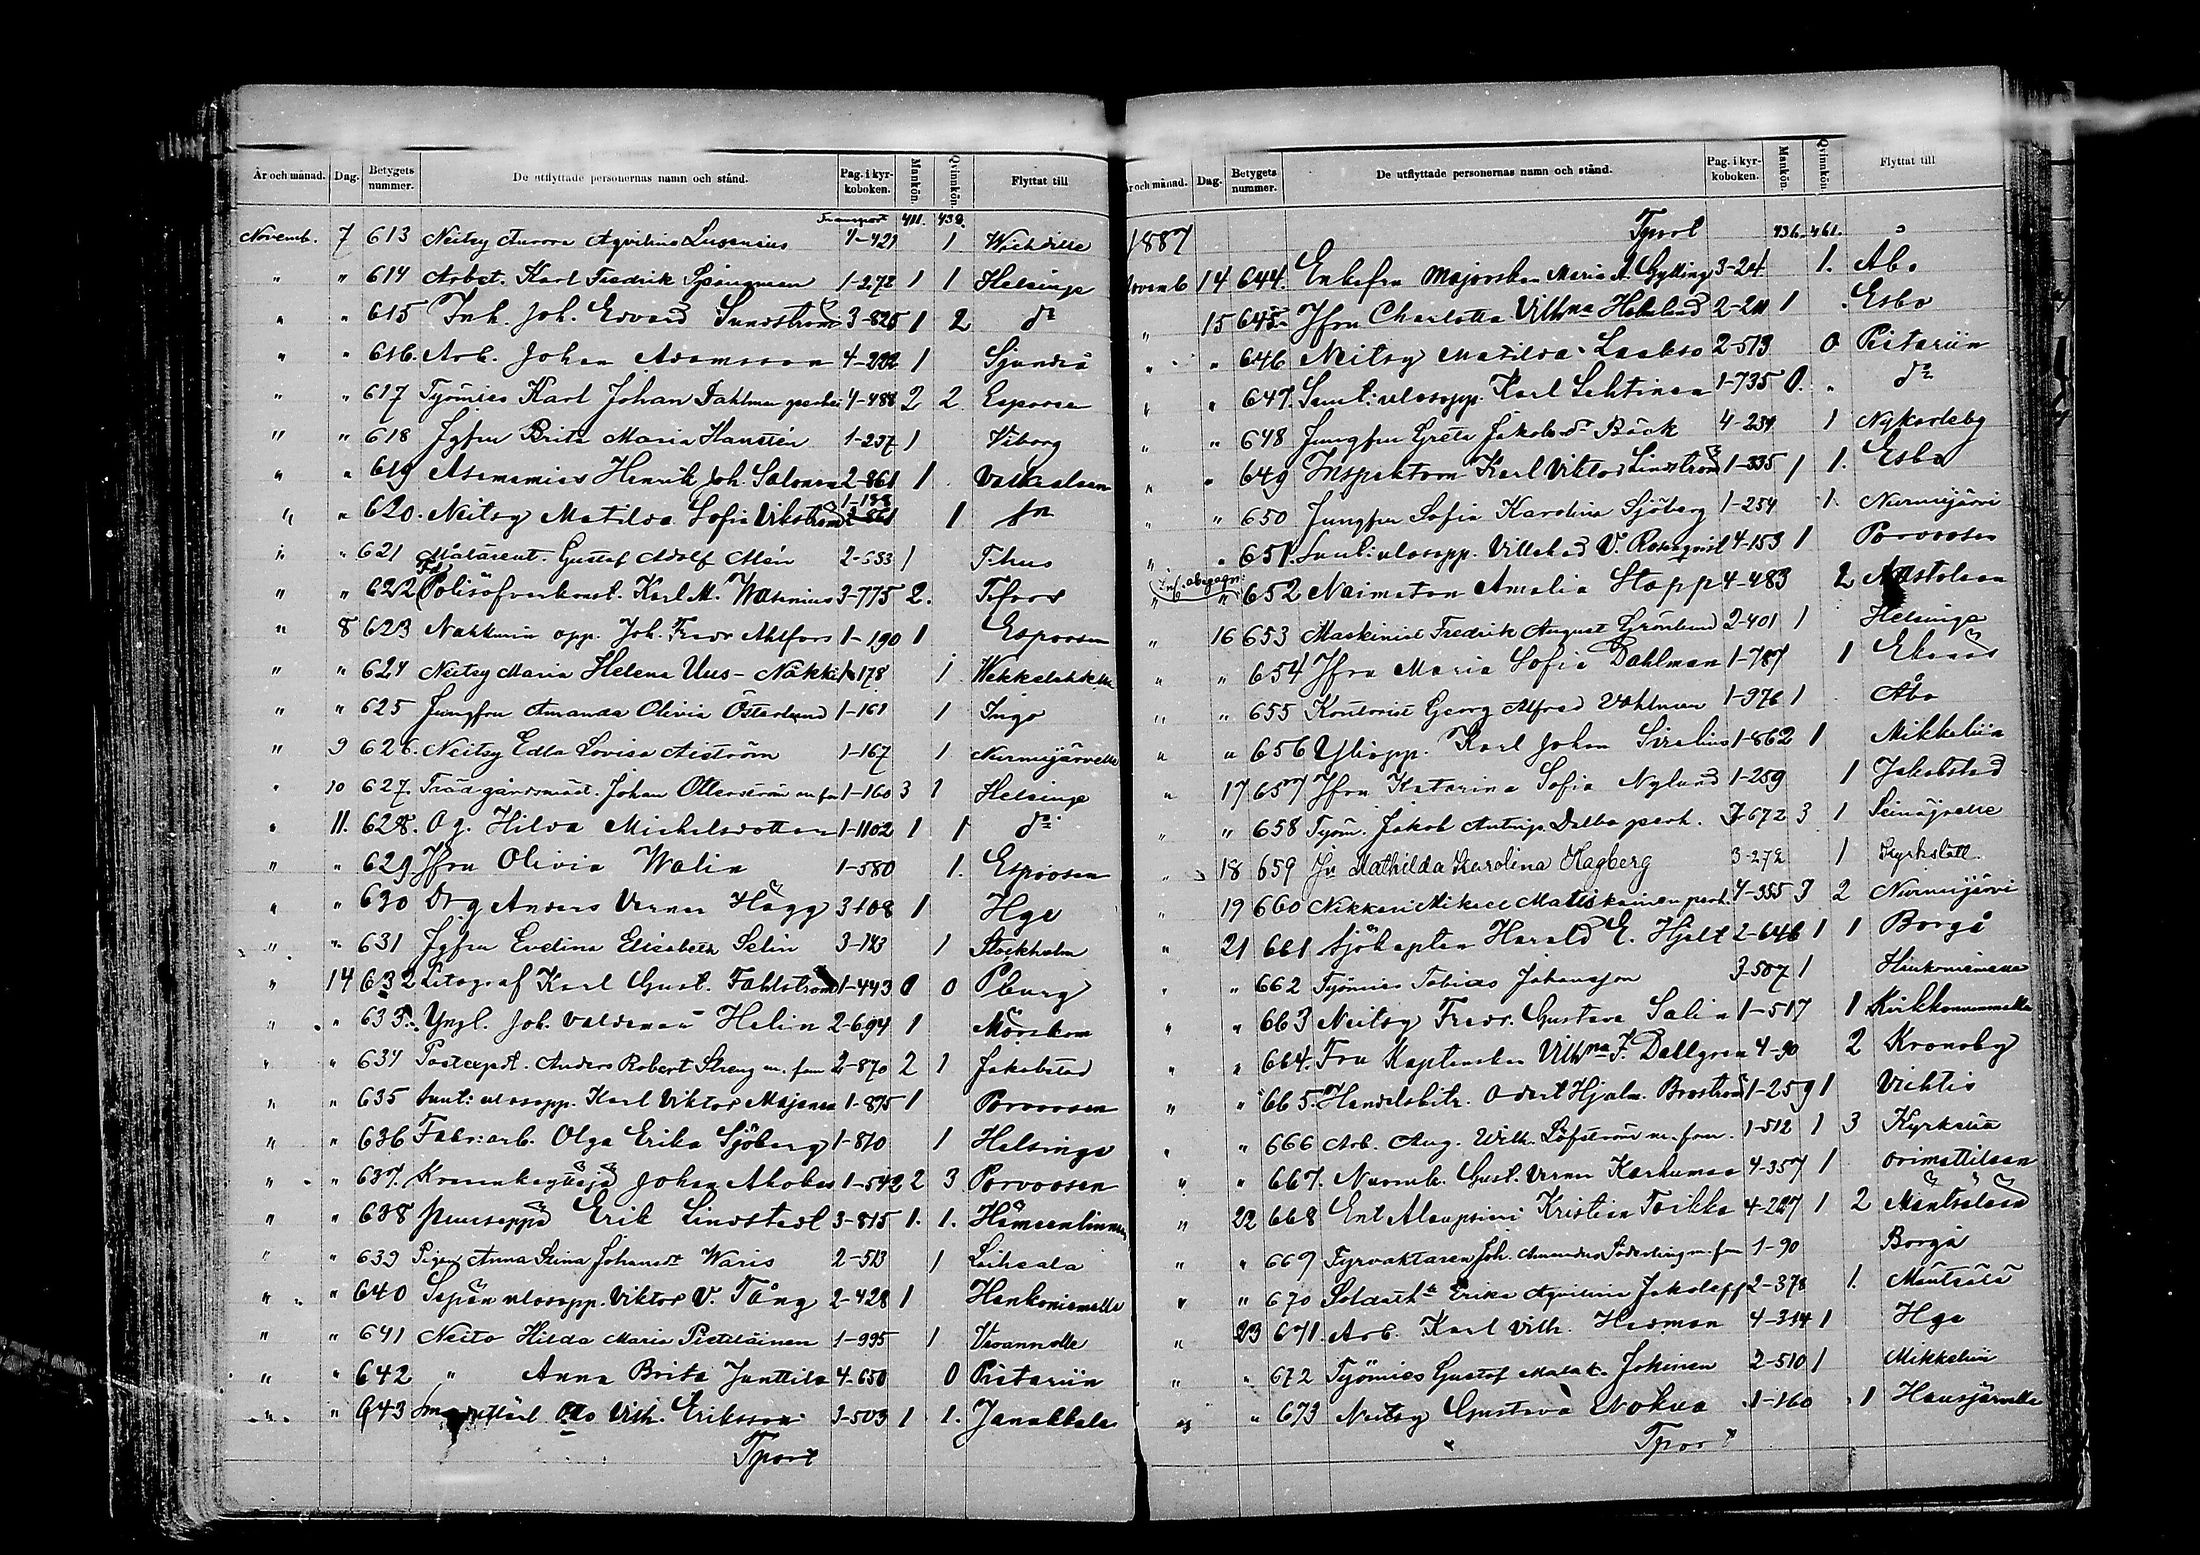 År och månad. Dag. Betygets nummer. De utflyttade personernas namn och stånd. Pag. i kyrkoboken. Mankön. Qvinnkön. Flyttat till
Transport 411. 432.
Novemb. 7 613 Neitsy Aurora Aqvilina Lusenius 4-421 1
" " 614 Arbet. Karl Fredrik Spångman 1-272 1 1 Helsinge
" " 615 Inh. Joh. Edvard Sundström 3-825 1 2 do
" " 616. Arb. Johan Adamsson 4-222 1 Sjundeå
" " 617 Työmies Karl Johan Dahlman 4-488 2 2 Espoosen
" " 618 Jgfru Brita Maria Hanstén 1-237 1 Viborg
" " 619 Asemamies Henrik Joh. Salonen 2-861 1 Valkealaan
" " 620. Neitsy Matilda Sofia Vikström 1-188 1
" " 621 Målarent. Gustaf Adolf Mén 2-533 1 T:hus
" " 622 Polisöfverkonst. Karl M. Wasenius 3-775 2. T:fors
" 8 623 Nahkurin opp. Joh. Fredr Ahlfors 1-190 1 Espoosen
" " 624 Neitsy Maria Helena Uus-Näkki 1-178 1
" " 625 Jungfru Amanda Olivia Österlund 1-161 1 Ingo
" 9 626. Neitsy Edla Lovisa Aiström 1-167 1 Nurmijärvelle
" 10 627. Trädgårdsmäst. Johan Otterström m. fam 1-160 3 1 Helsinge
" 11. 628. O.g. Hilda Michelsdotter 1-1102 1 1 do
" " 629 Jfru Olivia Walin 1-580 1. Espoosen
" " 630 Drg Anders Verner Hägg 3-108 1 Hge
" " 631 Jgfru Evelina Elisabeth Selin 3-143 1 Stockholm
" 14 632 Litograf Karl Gust. Fahlström 1-443 0 0 P:burg
" " 633. Yngl. Joh. Valdemar Helin 2-694 1 Mörskom
" " 634 Postexpdt. Anders Robert Streng m. fam 2-870 2 1 Jakobstad
" " 635 1-875 1 Porvoosen
" " 636 Fabr:arb. Olga Erika Sjöberg 1-810 1 Helsinge
" " 637. Johan Ahokas 1-542 2 3 Porvoosen
" " 638 Puuseppä Erik Lindstedt 3-815 1. 1. Hämeenlinnan
" " 639 Pigan Anna Stina Johansdr Waris 2-513 1
" " 640 Sepän ulosopp. Viktor V. Tång 2-428 1 Hankoniemelle
" " 641 Neito Hilda Maria Pietiläinen 1-995 1
" " 642 " Anna Brita Junttila 4-650 0 Pietariin
" " 643 Otto Vilh. Eriksson 3-503 1 1. Janakkala
Tport
År och månad. Dag. Betygets nummer. De utflyttade personernas namn och stånd. Pag. i kyrkoboken. Mankön. Qvinnkön. Flyttat till
1887 Tport 436. 461.
Novemb 14 644. Enkefru Majorskan Maria A. Gylling 3-24 1. Åbo
" 15 645. Jfru Charlotta Vilhna 2-211 1 Esbo
" " 646 Neitsy Matilda Laakso 2-513 0 Pietariin
" " 647. Karl Lehtinen 1-735 0. do
" " 648 Jungfru Greta Jakobsdr Bäck 4-234 1 Nykarleby
" " 649 Inspektorn Karl Viktor Lindström 1-335 1 1. Esbo
" " 650 Jungfru Sofia Karolina Sjöberg 1-254 1. Nurmijärvi
" " 651. Villehad V. Rosenqvist 4-153 1 Porvoosen
" " 652 Naimaton Amalia Stapp 4-483 2 Nastolaan
" 16 653 Maskinist Fredrik August Grönlund 2-401 1 Helsinge
" " 654 Jfru Maria Sofia Dahlman 1-787 1 Ekenäs
" " 655 Kontorist Georg Alfred Vahlman 1-976 1 Åbo
" " 656 Yliopp. Karl Johan Sirelius 1-862 1 Mikkeliin
" 17 657 Jfru Katarina Sofia Nylund 1-259 1 Jakobstad
" " 658 Työm. Jakob 3-672 3 1
" 18 659 Jfr Mathilda Karolina Hagberg 3-272 1 Kyrkslätt.
" 19 660 Nikkari Mikael Matiskainen perh. 4-355 3 2 Nurmijärvi
" 21 661 Sjökapten Harald E. Hjelt 2-646 1 1 Borgå
" " 662 Työmies Tobias Johansson 3-507 1 Hankoniemelle
" " 663 Neitsy Fredr. Gustava Salin 1-517 1 Kirkkonummelle
" " 664. Fru Kaptenskan Vilhna F. Dallgren 4-90 2 Kronoby
" " 665. Handelsbitr. Hjalm. Broström 1-259 1 Vichtis
" " 666 Arb. Aug. Wilh. Löfström m. fam. 1-512 1 3
" " 667. Gust. Verner Karhumaa 4-357 1 Orimattilaan
" 22 668 Ent Aliupsieri Kristian Toikka 4-227 1 2 Mäntsälään
" " 669 Fyrvaktaren Joh. Amandus Söderling m. fam 1-90 Borgå
" " 670 Erika Aqvilina 2-378 1. Mäntsälä
" 23 671. Arb. Karl Vilh. Herman 4-314 1 Hge
" " 672 Työmies Gustaf Jokinen 2-510 1 Mikkeliin
" " 673 Neitsy Gustava Nokua 1-160 1 Hausjärvelle
Tport